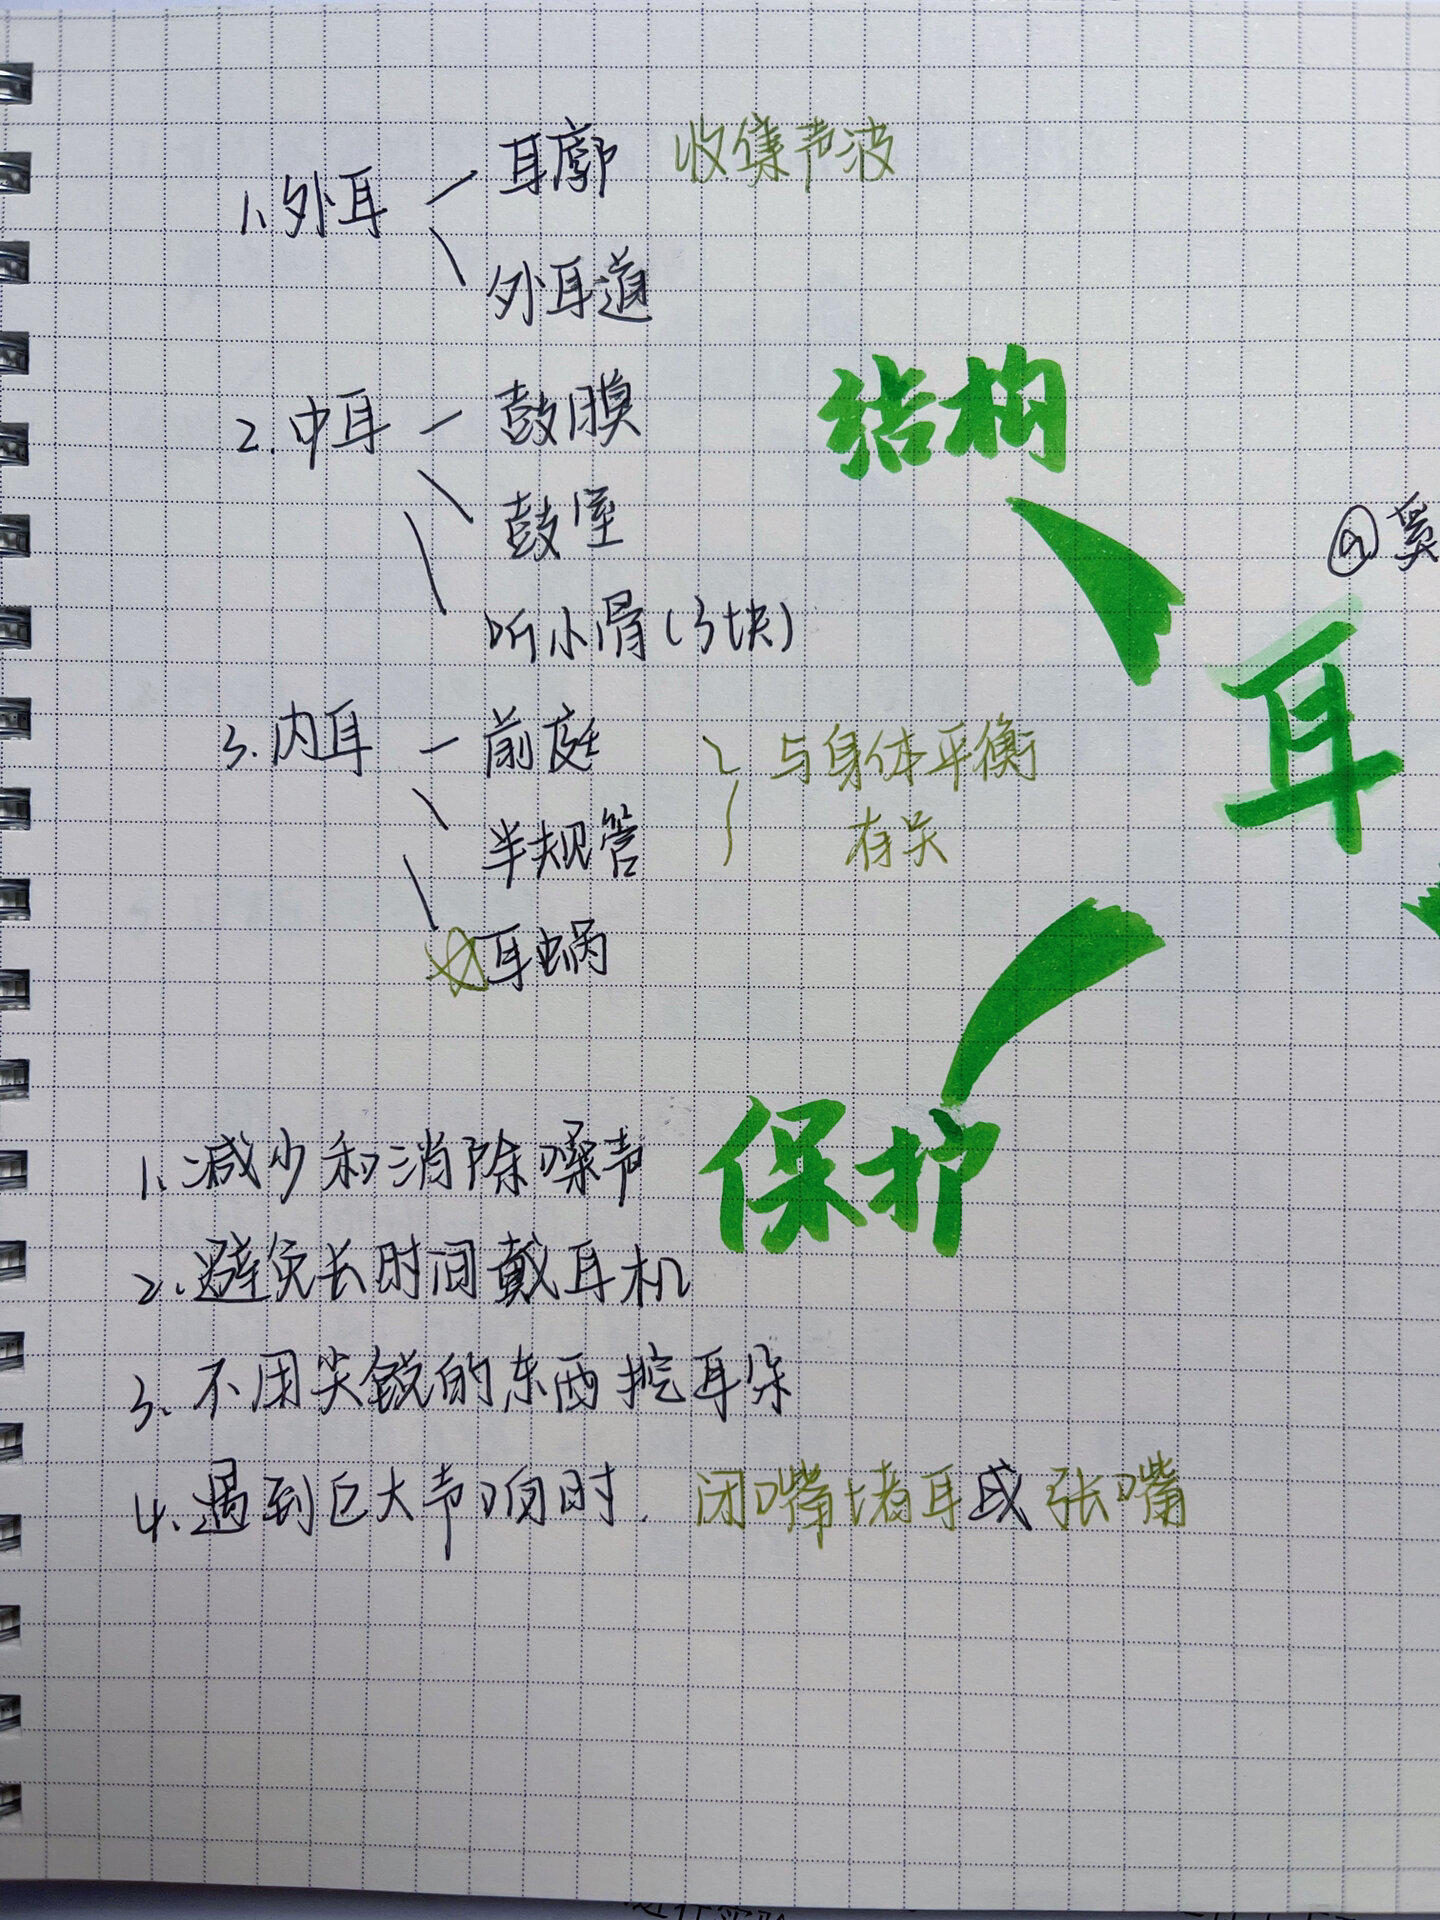 1、外耳 耳廓 收集声波
外耳道
2.中耳 鼓膜
鼓室
听小骨(3块)
结构
耳
3.内耳 前庭
半规管
与身体平衡
有关
耳蜗
保护
1、减少和消除噪声
2、避免长时间戴耳机
3、不用尖锐的东西挖耳朵
4、遇到巨大声响时. 闭嘴堵耳或张嘴